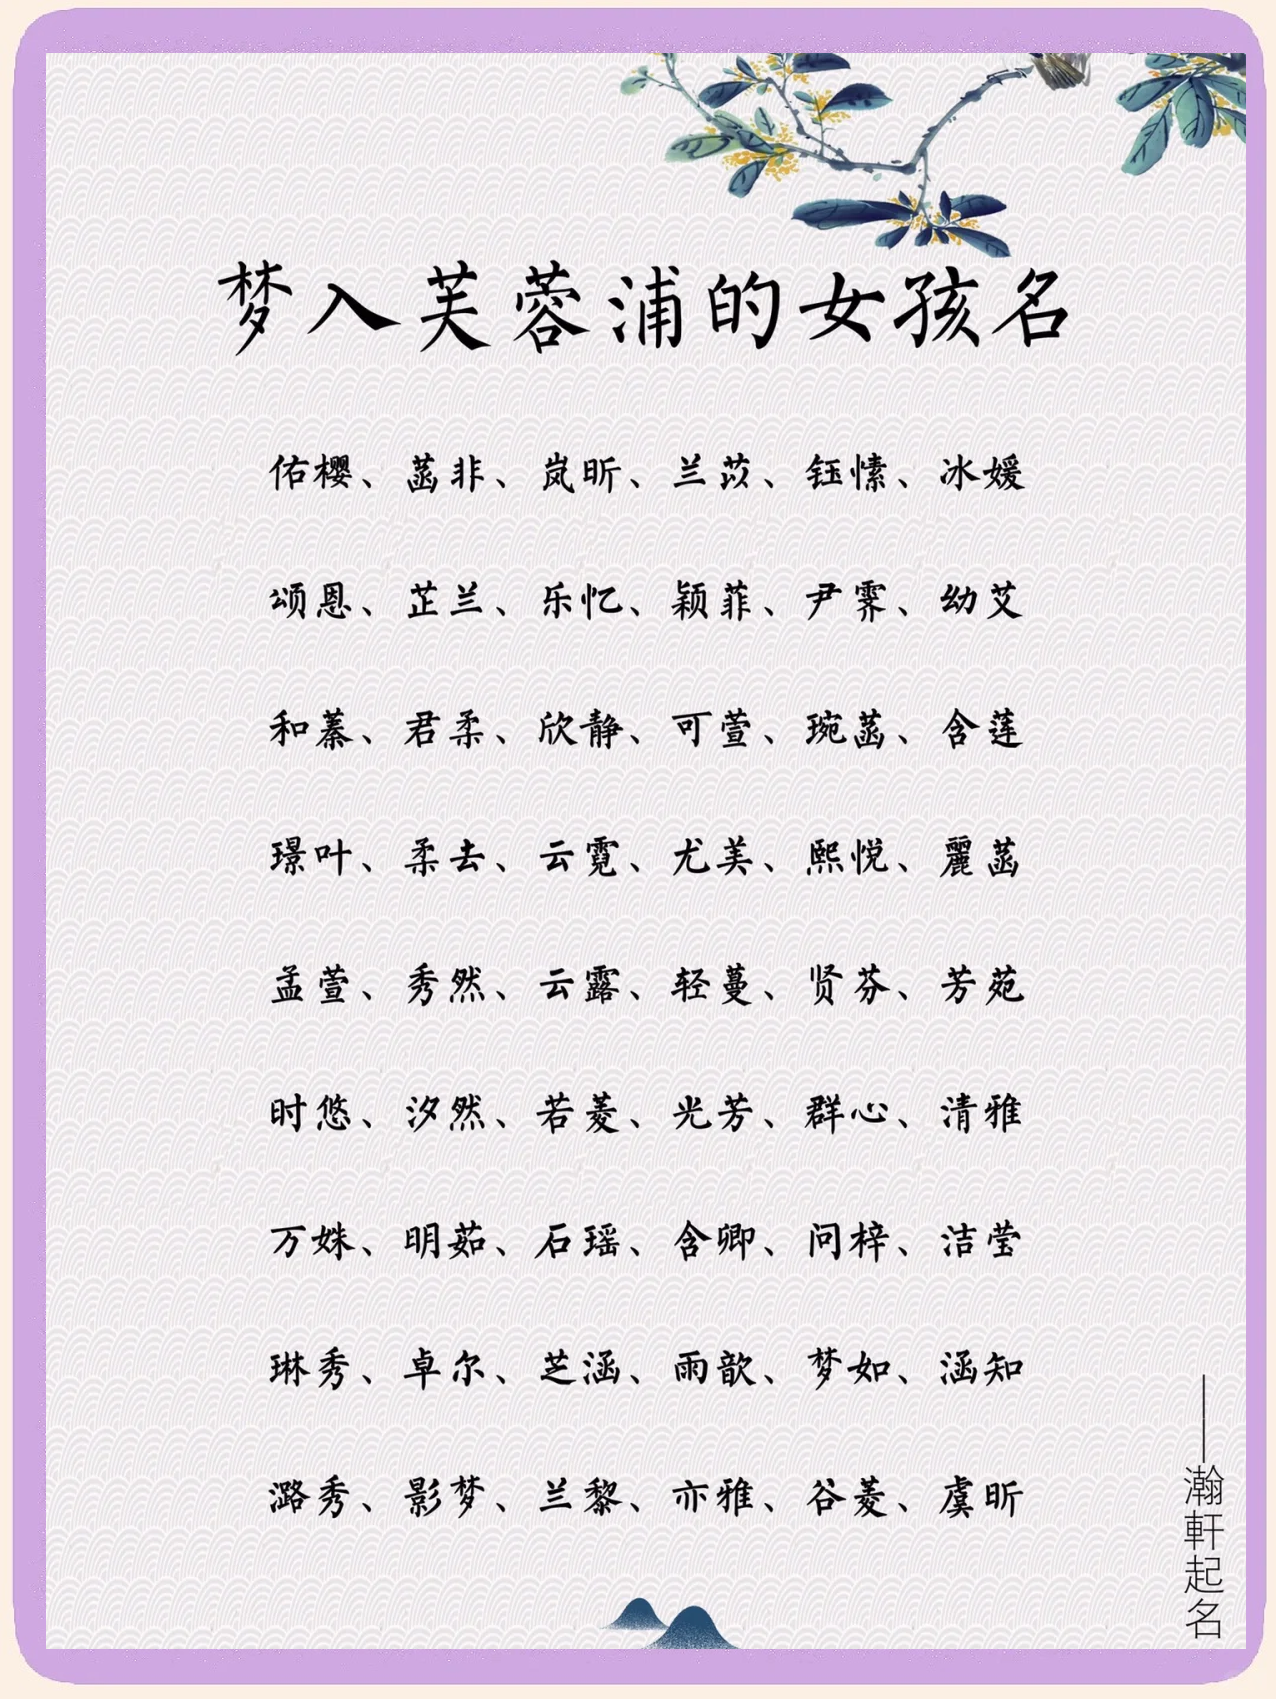 梦入芙蓉浦的女孩名
佑樱、菡非、岚昕、兰苡、钰愫、冰媛
颂恩、芷兰、乐忆、颖菲、尹霁、幼艾
和蓁、君柔、欣静、可萱、琬菡、含莲
璟叶、柔去、云霓、尤美、熙悦、麗菡
孟萱、秀然、云露、轻蔓、贤芬、芳苑
时悠、汐然、若菱、光芳、群心、清雅
万姝、明茹、石瑶、含卿、问梓、洁莹
琳秀、卓尔、芝涵、雨歆、梦如、涵知
潞秀、影梦、兰黎、亦雅、谷菱、虞昕
——瀚軒起名